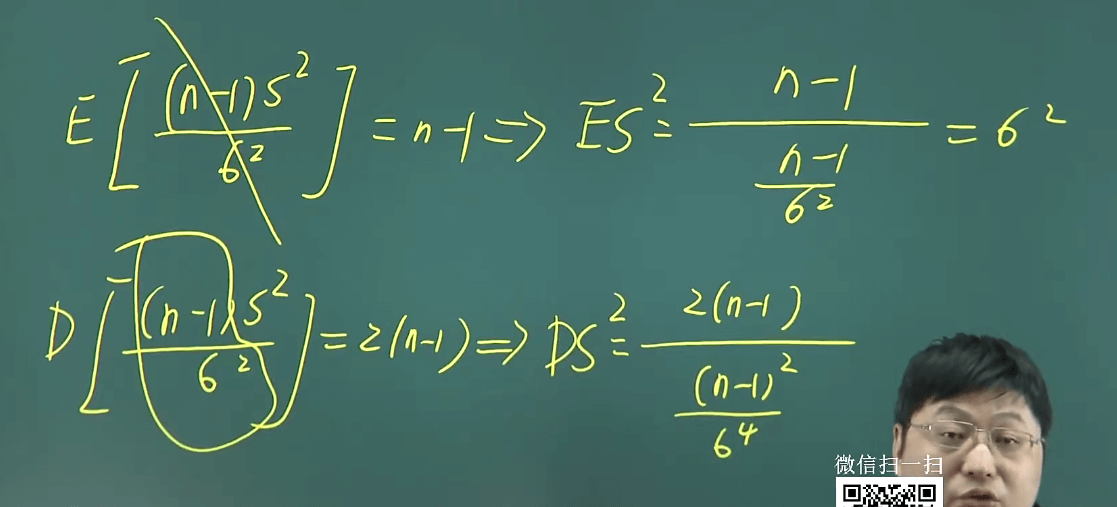 E[(n-1)S²/σ²] = n-1 ⇒ ES² = (n-1)/((n-1)/σ²) = σ²
D[(n-1)S²/σ²] = 2(n-1) ⇒ DS² = 2(n-1)/((n-1)²/σ⁴)
微信扫一扫